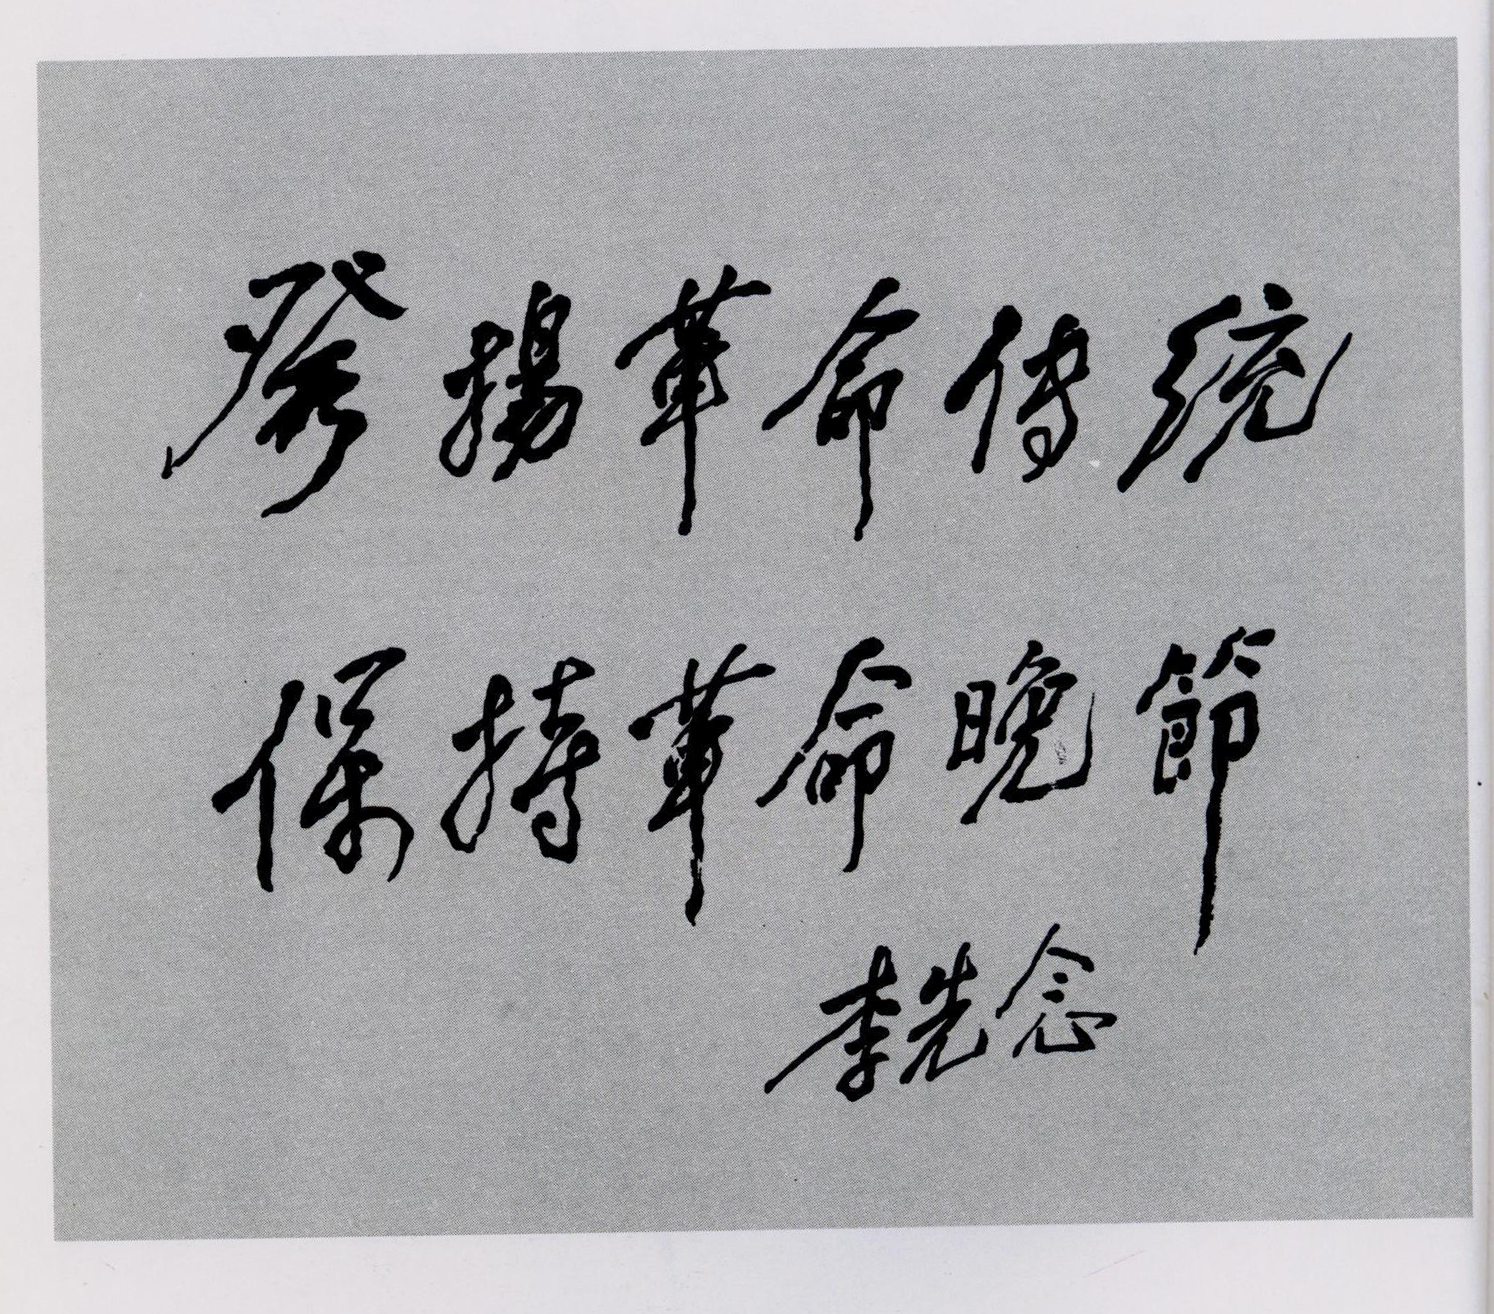 發揚革命传统
保持革命晚節
李先念